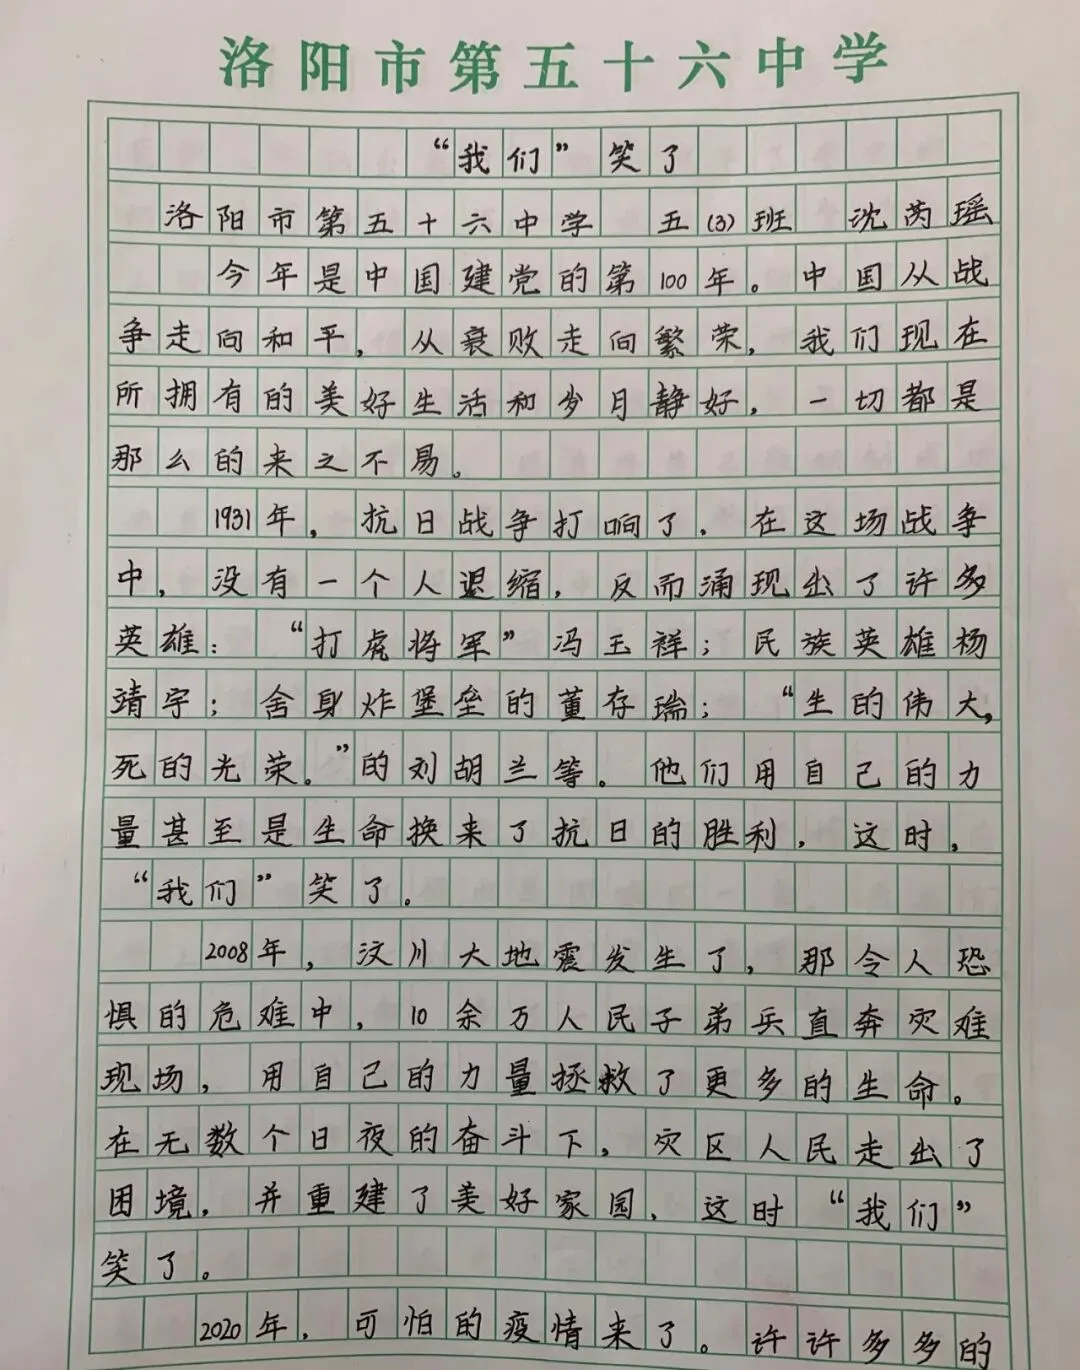 洛阳市第五十六中学
“我们”笑了
洛阳市第五十六中学 五(3)班 沈芮瑶
今年是中国建党的第100年。中国从战
争走向和平,从衰败走向繁荣,我们现在
所拥有的美好生活和岁月静好,一切都是
那么的来之不易。
1931年,抗日战争打响了,在这场战争
中,没有一个人退缩,反而涌现出了许多
英雄:“打虎将军”冯玉祥;民族英雄杨
靖宇;舍身炸堡垒的董存瑞;“生的伟大,
死的光荣。”的刘胡兰等。他们用自己的力
量甚至是生命换来了抗日的胜利,这时,
“我们”笑了。
2008年,汶川大地震发生了,那令人恐
惧的危难中,10余万人民子弟兵直奔灾难
现场,用自己的力量拯救了更多的生命。
在无数个日夜的奋斗下,灾区人民走出了
困境,并重建了美好家园,这时“我们”
笑了。
2020年,可怕的疫情来了。许许多多的